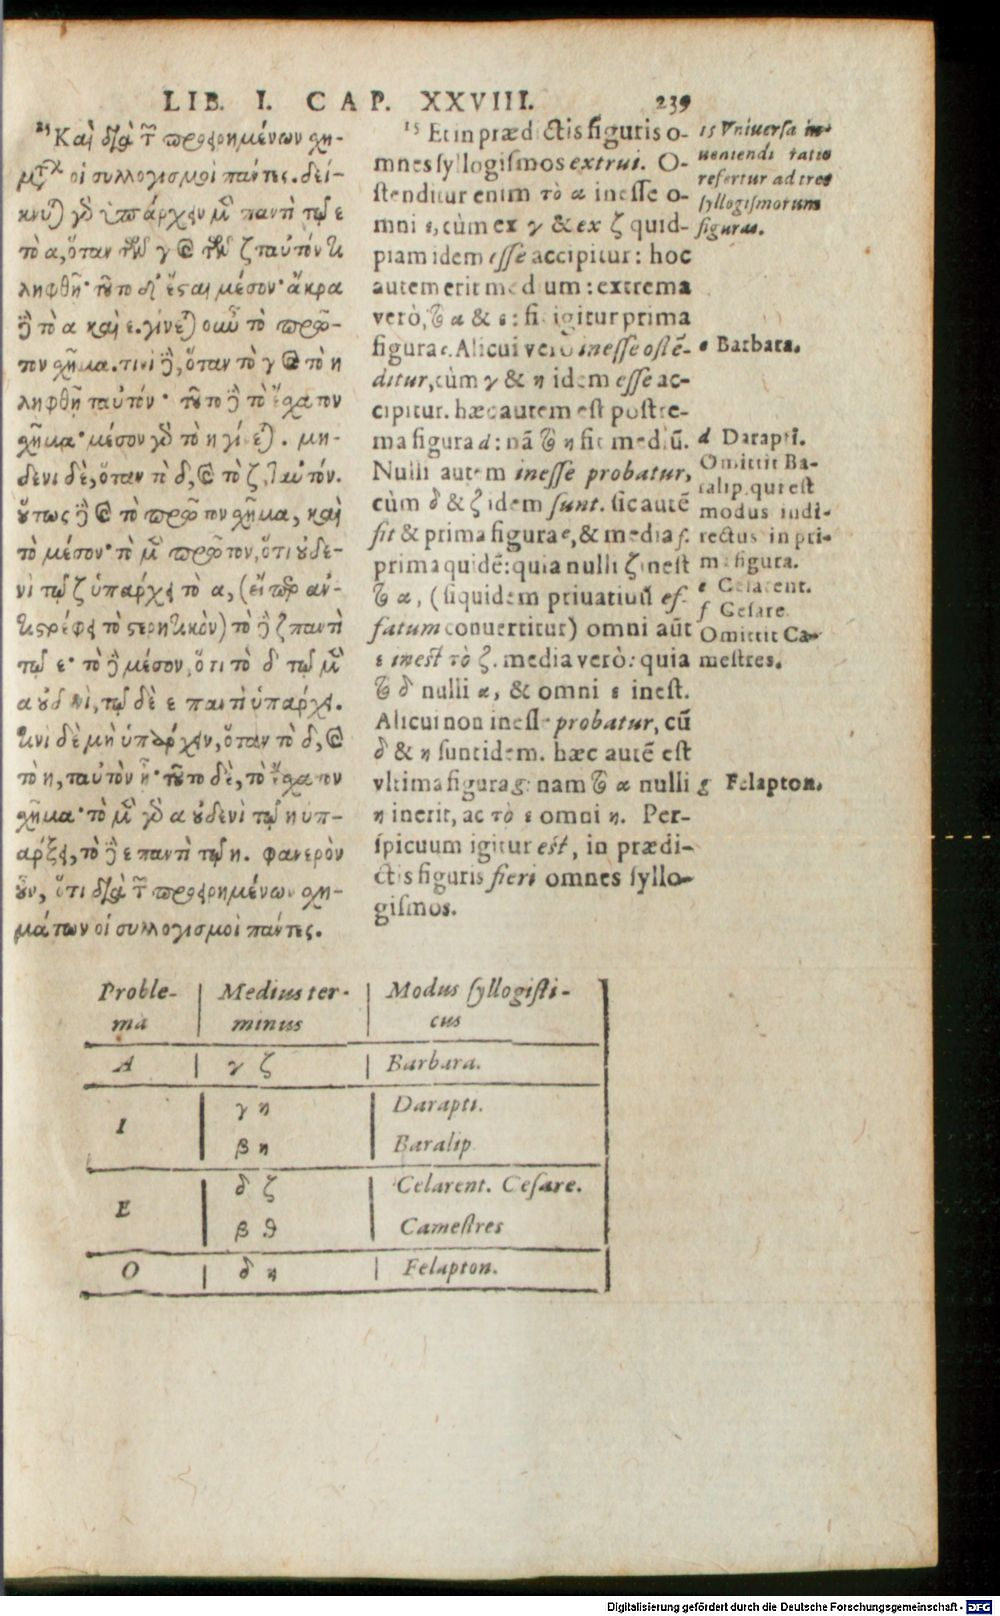 LIB. I. CAP. XXVIII. 239
15 Καὶ διὰ τῶν προειρημένων χη-
μάτων οἱ συλλογισμοὶ πάντες. δεί-
κνυται γὰρ ὑπάρχειν μὲν παντὶ τῷ ε
τὸ α, ὅταν τῶν γ καὶ τῶν ζ ταὐτόν τι
ληφθῇ· τοῦτο δ' ἔσται μέσον· ἄκρα
δὲ τὸ α καὶ ε. γίνεται οὖν τὸ πρῶ-
τον χῆμα. τινὶ δὲ, ὅταν τὸ γ καὶ τὸ η
ληφθῇ ταὐτόν· τοῦτο δὲ τὸ ἔχατον
χῆμα· μέσον γὰρ τὸ η γίνεται. μη-
δενὶ δὲ, ὅταν τὸ δ, καὶ τὸ ζ, ταὐτόν.
οὕτως δὲ καὶ τὸ πρῶτον χῆμα, καὶ
τὸ μέσον· τὸ μὲν πρῶτον, ὅτι οὐδε-
νὶ τῷ ζ ὑπάρχει τὸ α, (εἴπερ ἀν-
τιστρέφει τὸ στερητικὸν) τὸ δὲ ζ παντὶ
τῷ ε· τὸ δὲ μέσον, ὅτι τὸ δ τῷ μὲν
α οὐδενὶ, τῷ δὲ ε παντὶ ὑπάρχει.
τινὶ δὲ μὴ ὑπάρχειν, ὅταν τὸ δ, καὶ
τὸ η, ταὐτὸν ᾖ· τοῦτο δὲ, τὸ ἔχατον
χῆμα· τὸ μὲν γὰρ α οὐδενὶ τῷ η ὑπ-
άρξει, τὸ δὲ ε παντὶ τῷ η. φανερὸν
οὖν, ὅτι διὰ τῶν προειρημένων χη-
μάτων οἱ συλλογισμοὶ πάντες.
15 Et in prædictis figuris o-
mnes syllogismos extrui. O-
stenditur enim τὸ α inesse o-
mni ε, cùm ex γ & ex ζ quid-
piam idem esse accipitur: hoc
autem erit medium: extrema
verò, τὸ α & ε: fit igitur prima
figura c. Alicui verò inesse ostē-
ditur, cùm γ & η idem esse ac-
cipitur. hæc autem est postre-
ma figura d: nā τὸ η fit mediū.
Nulli autem inesse probatur,
cùm δ & ζ idem sunt. sic autē
fit & prima figura e, & media f.
prima quidē: quia nulli ζ inest
τὸ α, (siquidem priuatiuū ef-
fatum conuertitur) omni aūt
ε inest τὸ ζ. media verò: quia
τὸ δ nulli α, & omni ε inest.
Alicui non inesse probatur, cū
δ & η sunt idem. hæc autē est
vltima figura g: nam τὸ α nulli
η inerit, ac τὸ ε omni η. Per-
spicuum igitur est, in prædi-
ctis figuris fieri omnes syllo-
gismos.
15 Vniuersa in-
ueniendi ratio
refertur ad tres
syllogismorum
figuras.
c Barbara.
d Darapti.
Omittit Ba-
ralip. qui est
modus indi-
rectus in pri-
ma figura.
e Celarent.
f Cesare
Omittit Ca-
mestres.
g Felapton.
Proble- | Medius ter- | Modus syllogisti-
ma minus cus
A | γ ζ | Barbara.
I | γ η | Darapti.
β η Baralip
E | δ ζ | Celarent. Cesare.
β θ Camestres
O | δ η | Felapton.
Digitalisierung gefördert durch die Deutsche Forschungsgemeinschaft - DFG